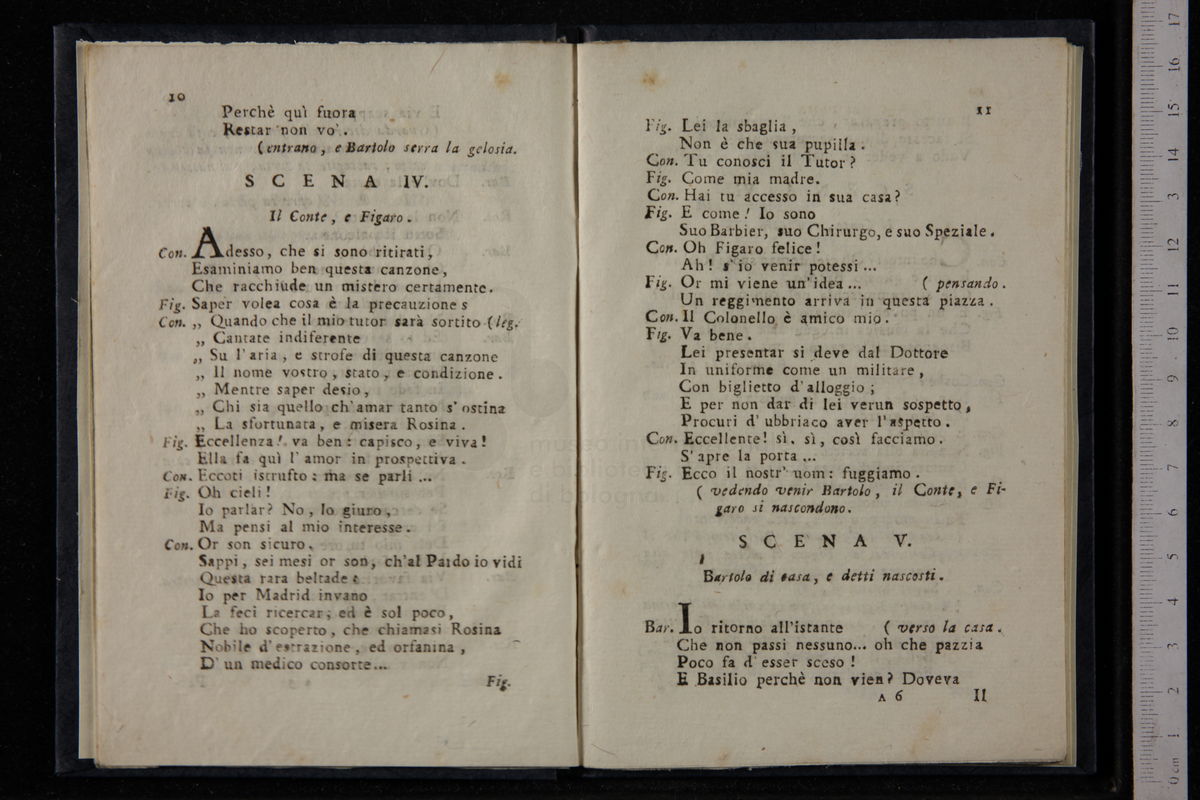 10
Perchè quì fuora
Restar non vo'.
(entrano, e Bartolo serra la gelosia.
SCENA IV.
Il Conte, e Figaro.
Con. Adesso, che si sono ritirati,
Esaminiamo ben questa canzone,
Che racchiude un mistero certamente.
Fig. Saper volea cosa è la precauzione s
Con. „ Quando che il mio tutor sarà sortito (leg.
„ Cantate indiferente
„ Su l'aria, e strofe di questa canzone
„ Il nome vostro, stato, e condizione.
„ Mentre saper desio,
„ Chi sia quello ch'amar tanto s'ostina
„ La sfortunata, e misera Rosina.
Fig. Eccellenza! va ben: capisco, e viva!
Ella fa quì l'amor in prospettiva.
Con. Eccoti istrufto: ma se parli ...
Fig. Oh cieli!
Io parlar? No, lo giuro,
Ma pensi al mio interesse.
Con. Or son sicuro.
Sappi, sei mesi or son, ch'al Pardo io vidi
Questa rara beltade:
Io per Madrid invano
La feci ricercar; ed è sol poco,
Che ho scoperto, che chiamasi Rosina
Nobile d'estrazione, ed orfanina,
D'un medico consorte...
Fig.
11
Fig. Lei la sbaglia,
Non è che sua pupilla.
Con. Tu conosci il Tutor?
Fig. Come mia madre.
Con. Hai tu accesso in sua casa?
Fig. E come! Io sono
Suo Barbier, suo Chirurgo, e suo Speziale.
Con. Oh Figaro felice!
Ah! s'io venir potessi ...
Fig. Or mi viene un'idea ... (pensando.
Un reggimento arriva in questa piazza.
Con. Il Colonello è amico mio.
Fig. Va bene.
Lei presentar si deve dal Dottore
In uniforme come un militare,
Con biglietto d'alloggio;
E per non dar di lei verun sospetto,
Procuri d'ubbriaco aver l'aspetto.
Con. Eccellente! sì, sì, così facciamo.
S'apre la porta ...
Fig. Ecco il nostr'uom: fuggiamo.
(vedendo venir Bartolo, il Conte, e Fi-
garo si nascondono.
SCENA V.
Bartolo di casa, e detti nascosti.
Bar. Io ritorno all'istante (verso la casa.
Che non passi nessuno... oh che pazzia
Poco fa d'esser sceso!
E Basilio perchè non vien? Doveva
A 6 Il